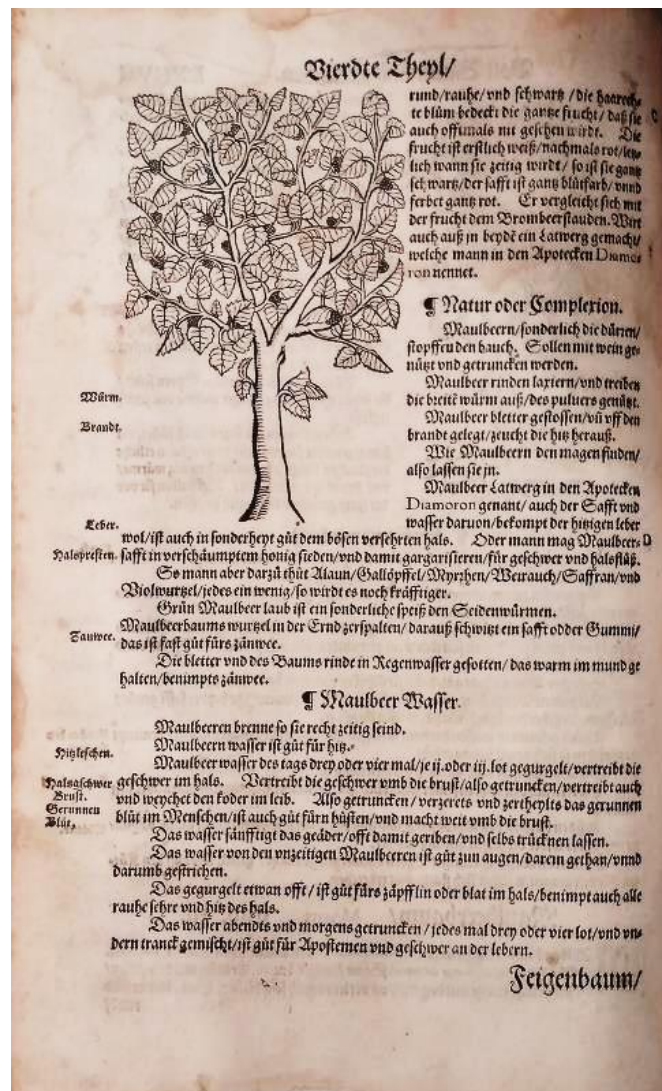 Vierdte Theyl/
rund/rauhe/vnd schwartz/die haarech-
te blům bedeckt die gantze frucht/daß sie
auch offtmals nit gesehen wirdt. Die
frucht ist erstlich weiß/nachmals rot/letz-
lich wann sie zeitig wirdt/so ist sie gantz
schwartz/der safft ist gantz blůtfarb/vnnd
ferbet gantz rot. Er vergleicht sich mit
der frucht dem Brombeerstauden. Wirt
auch auß jn beydẽ ein Latwerg gemacht/
welche mann in den Apotecken Diamo-
ron nennet.
¶ Natur oder Complexion.
Maulbeern/sonderlich die dürren/
stopffen den bauch. Sollen mit wein ge-
nützt vnd getruncken werden.
Maulbeer rinden laxiern/vnd treiben
Würm.
die breitẽ würm auß/des puluers genützt.
Maulbeer bletter gestossen/vñ vff den
Brandt.
brandt gelegt/zeucht die hitz herauß.
Wie Maulbeern den magen finden/
also lassen sie jn.
Maulbeer Latwerg in den Apotecken
Diamoron genant/auch der Safft vnd
Leber.
wasser daruon/bekompt der hitzigen leber
wol/ist auch in sonderheyt gůt dem bösen versehrten hals. Oder mann mag Maulbeer-
Halspresten.
safft in verschäumptem honig sieden/vnd damit gargarisieren/für geschwer vnd halsflüß.
So mann aber darzů thůt Alaun/Gallöpffel/Myrrhen/Weirauch/Saffran/vnd
Violwurtzel/jedes ein wenig/so wirdt es noch kräfftiger.
Grün Maulbeer laub ist ein sonderliche speiß den Seidenwürmen.
Maulbeerbaums wurtzel in der Ernd zerspalten/darauß schwitzt ein safft odder Gummi/
Zanwee.
das ist fast gůt fürs zänwee.
Die bletter vnd des Baums rinde in Regenwasser gesotten/das warm im mund ge
halten/benimpts zänwee.
¶ Maulbeer Wasser.
Maulbeeren brenne so sie recht zeitig seind.
Maulbeern wasser ist gůt für hitz.
Hitzleschen.
Maulbeer wasser des tags drey oder vier mal/je ij. oder iij. lot gegurgelt/vertreibt die
Halsgschwer
geschwer im hals. Vertreibt die geschwer vmb die brust/also getruncken/vertreibt auch
Brust.
vnd weychet den koder im leib. Also getruncken/verzerets vnd zertheylts das gerunnen
Gerunnen
Blůt,
blůt im Menschen/ist auch gůt fürn hůsten/vnd macht weit vmb die brust.
Das wasser sänfftigt das geäder/offt damit geriben/vnd selbs trücknen lassen.
Das wasser von den vnzeitigen Maulbeeren ist gůt zun augen/darein gethan/vnnd
darumb gestrichen.
Das gegurgelt etwan offt/ist gůt fürs zäpfflin oder blat im hals/benimpt auch alle
rauhe sehre vnd hitz des hals.
Das wasser abendts vnd morgens getruncken/jedes mal drey oder vier lot/vnd vn-
dern tranck gemischt/ist gůt für Apostemen vnd geschwer an der lebern.
Feigenbaum/